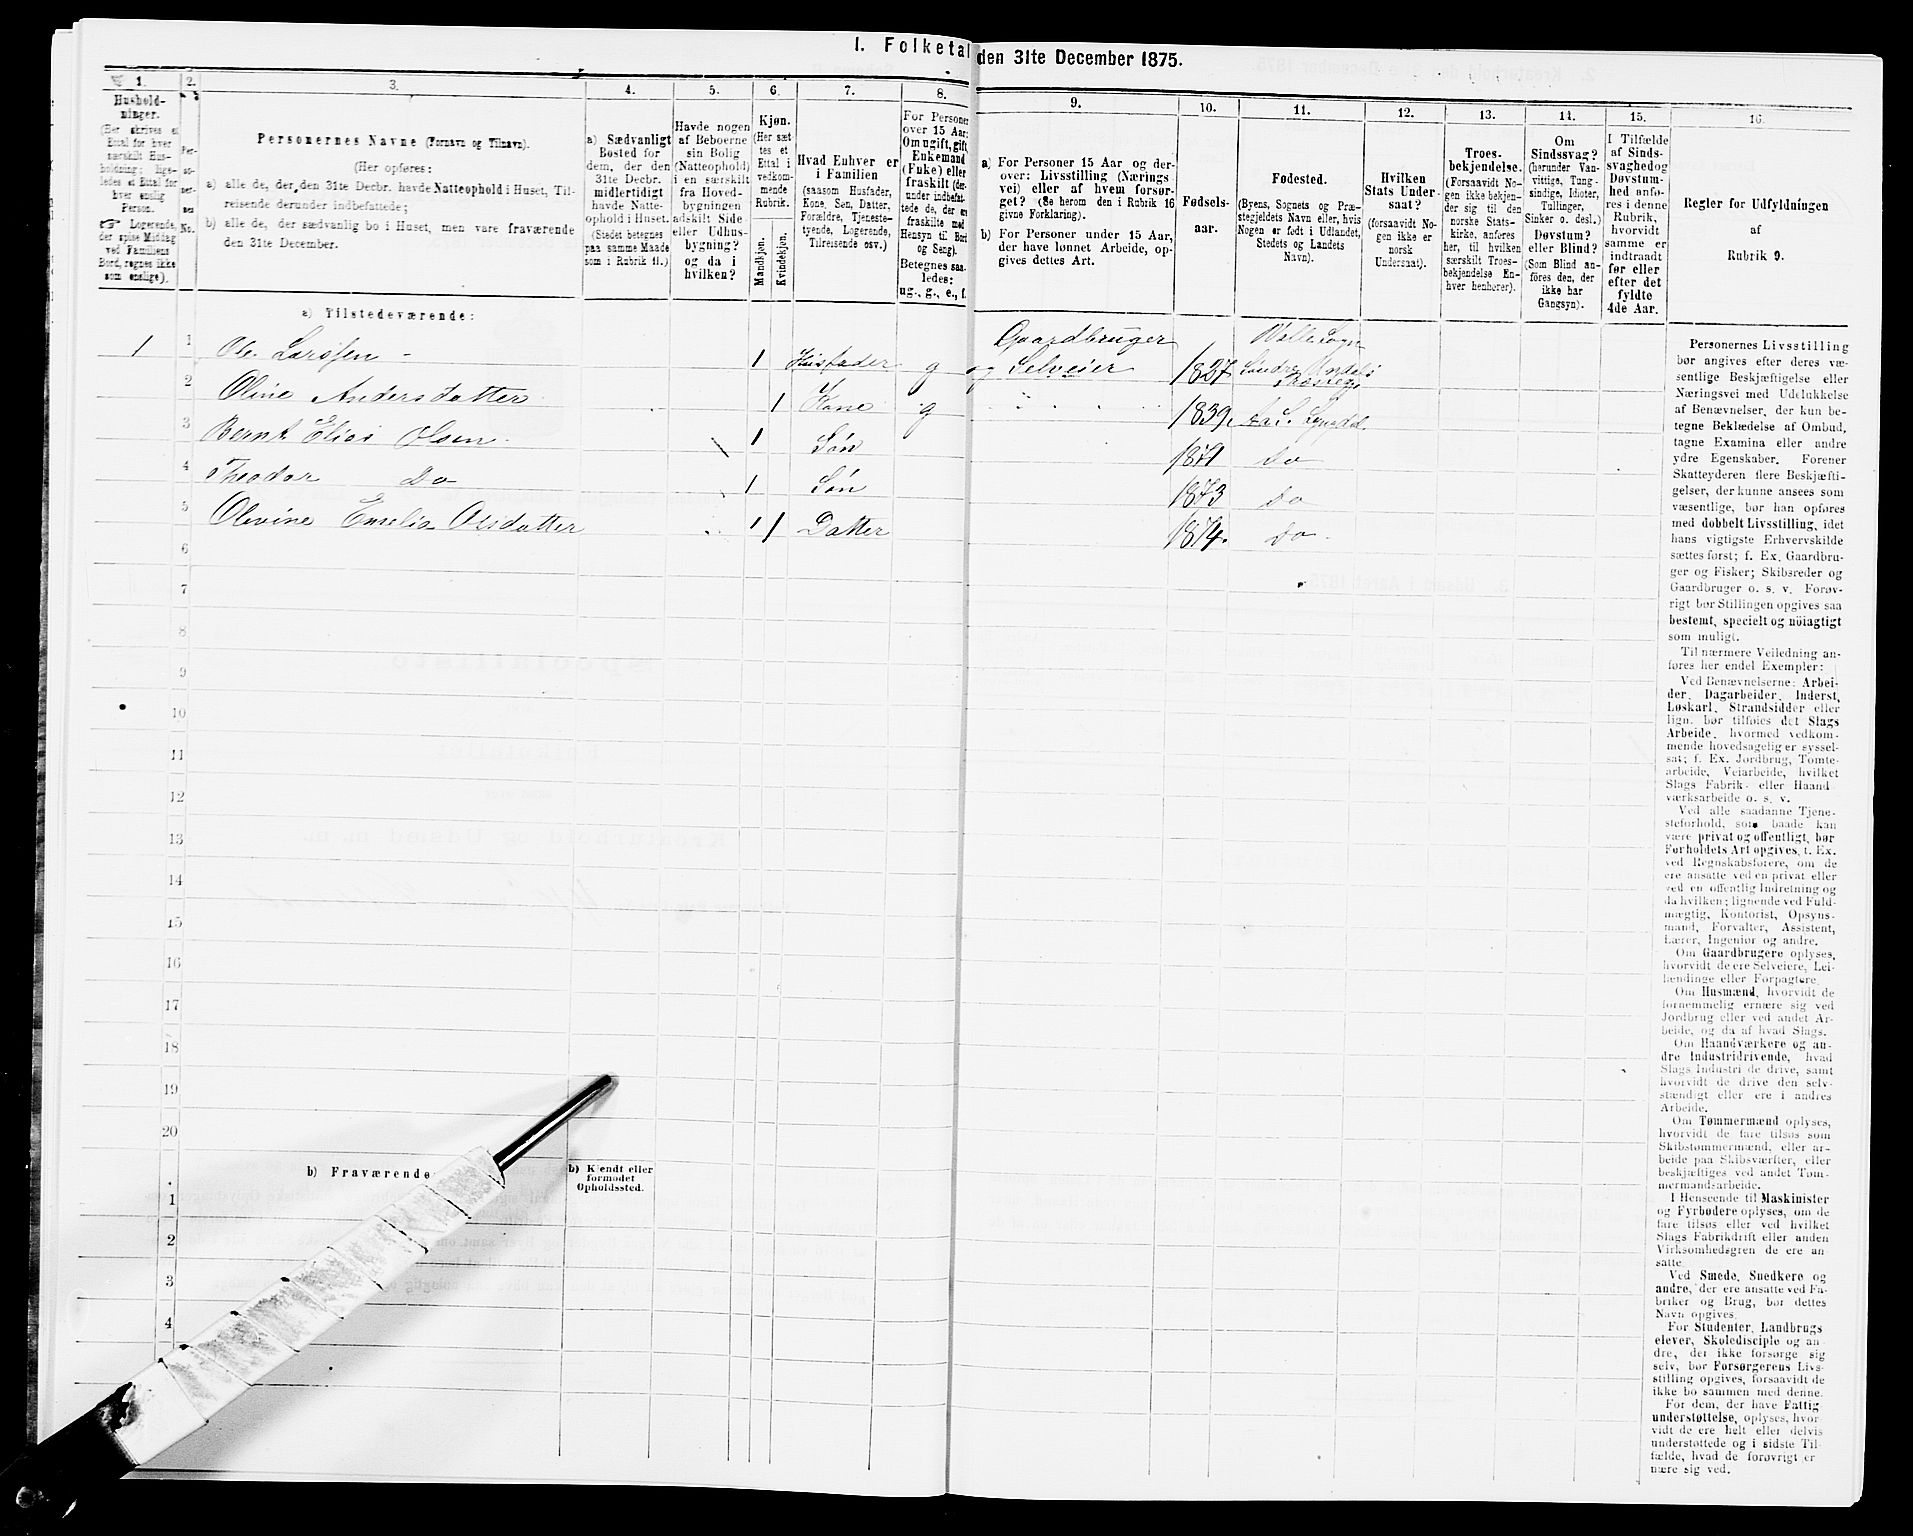 I. Folketal den 31te December 1875.
1.
Hushold-
ninger.
(Her skrives et
Ettal for hver
særskilt Hus-
holdning; lige-
ledes et Ettal for
hver enslig
Person.
☞ Logerende,
der spise Middag
ved Familiens
Bord, regnes ikke
som enslige).
2.
Per-
so-
ner-
nes
No.
3.
Personernes Navne (Fornavn og Tilnavn).
(Her opføres:
a) alle de, der den 31te Decbr. havde Natteophold i Huset, Til-
reisende derunder indbefattede;
b) alle de, der sædvanlig bo i Huset, men vare fraværende
den 31te December.
4.
a) Sædvanligt
Bosted for
dem, der den
31te Decbr.
midlertidigt
havde Natte-
ophold i Huset.
(Stedet betegnes
paa samme Maade
som i Rubrik 11.)
5.
Havde nogen
af Beboerne
sin Bolig
(Natteophold)
i en særskilt
fra Hoved-
bygningen
adskilt Side-
eller Udhus-
bygning?
og da i
hvilken?
6.
Kjøn.
(Her sæt
tes et
Ettal i
vedkom-
mende
Rubrik.
Mandkjøn.
Kvindekjøn.
7.
Hvad Enhver er
i Familien
(saasom Husfader,
Kone, Søn, Datter,
Forældre, Tjeneste-
tyende, Logerende,
Tilreisende osv.)
8.
For Personer
over 15 Aar:
Om ugift, gift,
Enkemand
(Enke) eller
fraskilt (der-
under indbefat-
tede de, der ere
fraskilte med
Hensyn til Bord
og Seng).
Betegnes saa-
ledes:
ug., g., e., f.
9.
a) For Personer 15 Aar og der-
over: Livsstilling (Nærings
vei) eller af hvem forsør-
get? (Se herom den i Rubrik 16
givne Forklaring).
b) For Personer under 15 Aar,
der have lønnet Arbeide, op-
gives dettes Art.
10.
Fødsels-
aar.
11.
Fødested.
(Byens, Sognets og Præ-
stegjeldets Navn eller, hvis
Nogen er født i Udlandet,
Stedets og Landets
Navn).
12.
Hvilken
Stats Under-
saat?
(forsaavidt No-
gen ikke er
norsk
Undersaat).
13.
Troes-
bekjendelse.
(Forsaavidt No-
gen ikke bekjen-
der sig til den
norske Stats-
kirke, anføres
her, til hvilken
særskilt Troes-
bekjendelse En-
hver henhører).
14.
Om
Sindssvag?
(herunder Van-
vittige, Tung-
sindige, Idioter,
Tullinger,
Sinker o. desl.)
Døvstum?
eller Blind?
(Som Blind an-
føres den, der
ikke har
Gangsyn).
15.
I Tilfælde
af Sinds-
svaghed og
Døvstum-
hed anfø-
res i denne
Rubrik,
hvorvidt
samme er
indtraadt
før eller
efter det
fyldte
4de Aar.
16.
Regler for Udfyldningen
af
Rubrik 9.
a) Tilstedeværende:
1 1 Ole Larssen 1 Husfader g Gaardbruger
og Selveier 1827 Valle Sogn
Søndre Undals
Præstegj
2 Oline Andersdatter 1 Kone g 1839. Aa S. Lyngdal
3 Bernt Elias Olsen 1 Søn 1871 Do
4 Theodor Do 1 Søn 1873 Do
5 Olevine Emelia Olsdatter 1 1 Datter 1874. Do
6
7
8
9
10
11
12
13
14
15
16
17
18
19
20
b) Fraværende
b) Kjendt eller
formodet
Opholdssted.
1
2
3
4
Personernes Livsstilling
bør angives efter deres væ-
sentlige Beskjæftigelse eller
Næringsvei med Udelukkelse
af Benævnelser, der kun be-
tegne Beklædelse af Ombud,
tagne Examina eller andre
ydre Egenskaber. Forener
Skatteyderen flere Beskjæfti-
gelser, der kunne ansees som
væsentlige, bør han opføres
med dobbelt Livsstilling, idet
hans vigtigste Erhvervskilde
sættes først; f. Ex. Gaardbru-
ger og Fisker; Skibsreder og
Gaardbruger o. s. v. Forøv-
rigt bør Stillingen opgives saa
bestemt, specielt og nöiagtigt
som muligt.
Til nærmere Veiledning an-
føres her endel Exempler:
Ved Benævnelserne: Arbei-
der, Dagarbeider, Inderst,
Løskarl, Strandsidder eller
lign. bør tilføies det Slags
Arbeide, hvormed vedkom-
mende hovedsagelig er syssel-
sat; f. Ex. Jordbrug, Tomte-
arbeide, Veiarbeide, hvilket
Slags Fabrik- eller Haand
værksarbeide o. s. v.
Ved alle saadanne Tjene-
steforhold, som baade kan
være privat og offentligt, bør
Forholdets Art opgives, f. Ex.
ved Regnskabsførere, om de
ere ansatte ved en privat eller
ved en offentlig Indretning og
da hvilken; lignende ved Fuld-
mægtig, Kontorist, Opsyns-
mand, Forvalter, Assistent,
Lærer, Ingeniør og andre.
Om Gaardbrugere oplyses,
hvorvidt de ere Selveiere, Lei-
lændinge eller Forpagtere.
Om Husmænd, hvorvidt de
fornemmelig ernære sig ved
Jordbrug eller ved andet Ar-
beide, og da af hvad Slags.
Om Haandværkere og an-
dre Industridrivende, hvad
Slags Industri de drive, samt
hvorvidt de drive den selv-
stændigt eller ere i andres
Arbeide.
Om Tømmermænd oplyses,
hvorvidt de fare tilsøs som
Skibstømmermænd, eller ar-
beide paa Skibsværfter, eller
beskjæftiges ved andet Tøm-
mermandsarbeide.
I Henseende til Maskinister
og Fyrbødere oplyses, om de
fare tilsøs eller ved hvilket
Slags Fabrikdrift eller anden
Virksomhedsgren de ere an-
satte.
Ved Smede, Snedkere og
andre, der ere ansatte ved Fa-
briker og Brug, bør dettes
Navn opgives.
For Studenter, Landbrugs
elever, Skoledisciple og an-
dre, der ikke forsørge sig
selv, bør Forsørgerens Livs-
stilling opgives, forsaavidt de
ikke bo sammen med denne.
For dem, der have Fattig
understøttelse, oplyses, hvor-
vidt de ere helt eller delvis
understøttede og i sidste Til-
fælde, hvad de forøvrigt er
nære sig ved.